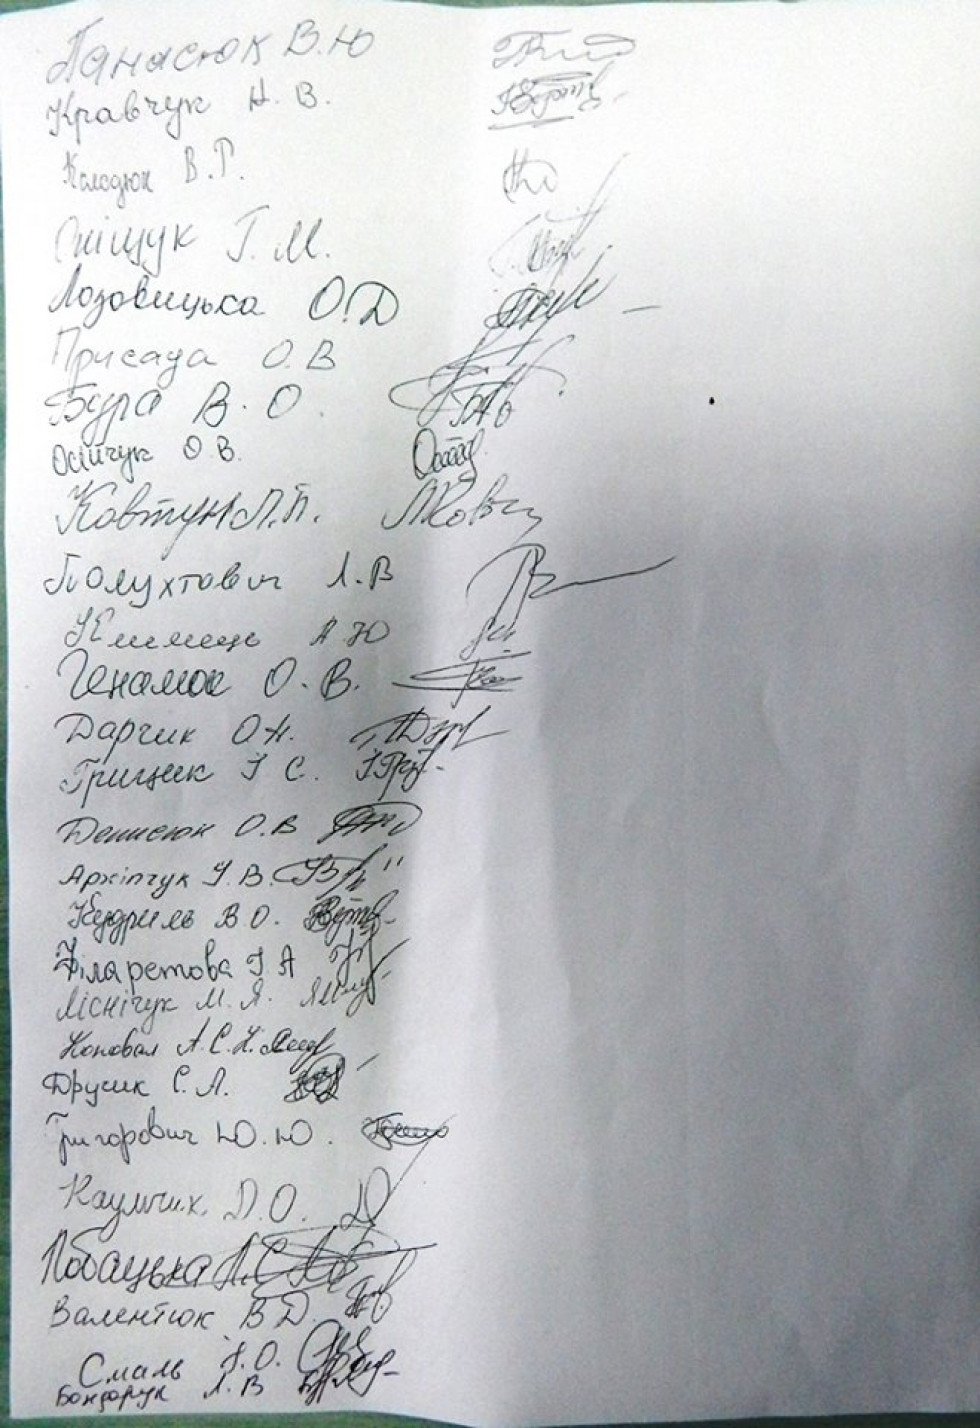 Панасюк В.Ю
Кравчук Н. В.
Колодюк В.Р.
Оніщук Г. М.
Лозовицька О.Д
Присада О.В
Бура В. О.
Осійчук О В.
Ковтун Л.П.
Полухтович Л.В
А Ю
О. В.
Дарчик О.Н.
Грицик І С.
Денисюк О.В
Архіпчук У.В.
Кедриль В О.
Філаретова І А
Лісничук М. Я.
Коновал А.С.
Друсик С.Л.
Григорович Ю.Ю.
Д.О.
Лобацька Л.С
Валентюк В Д.
Смаль І.О.
Бондарук Л. В